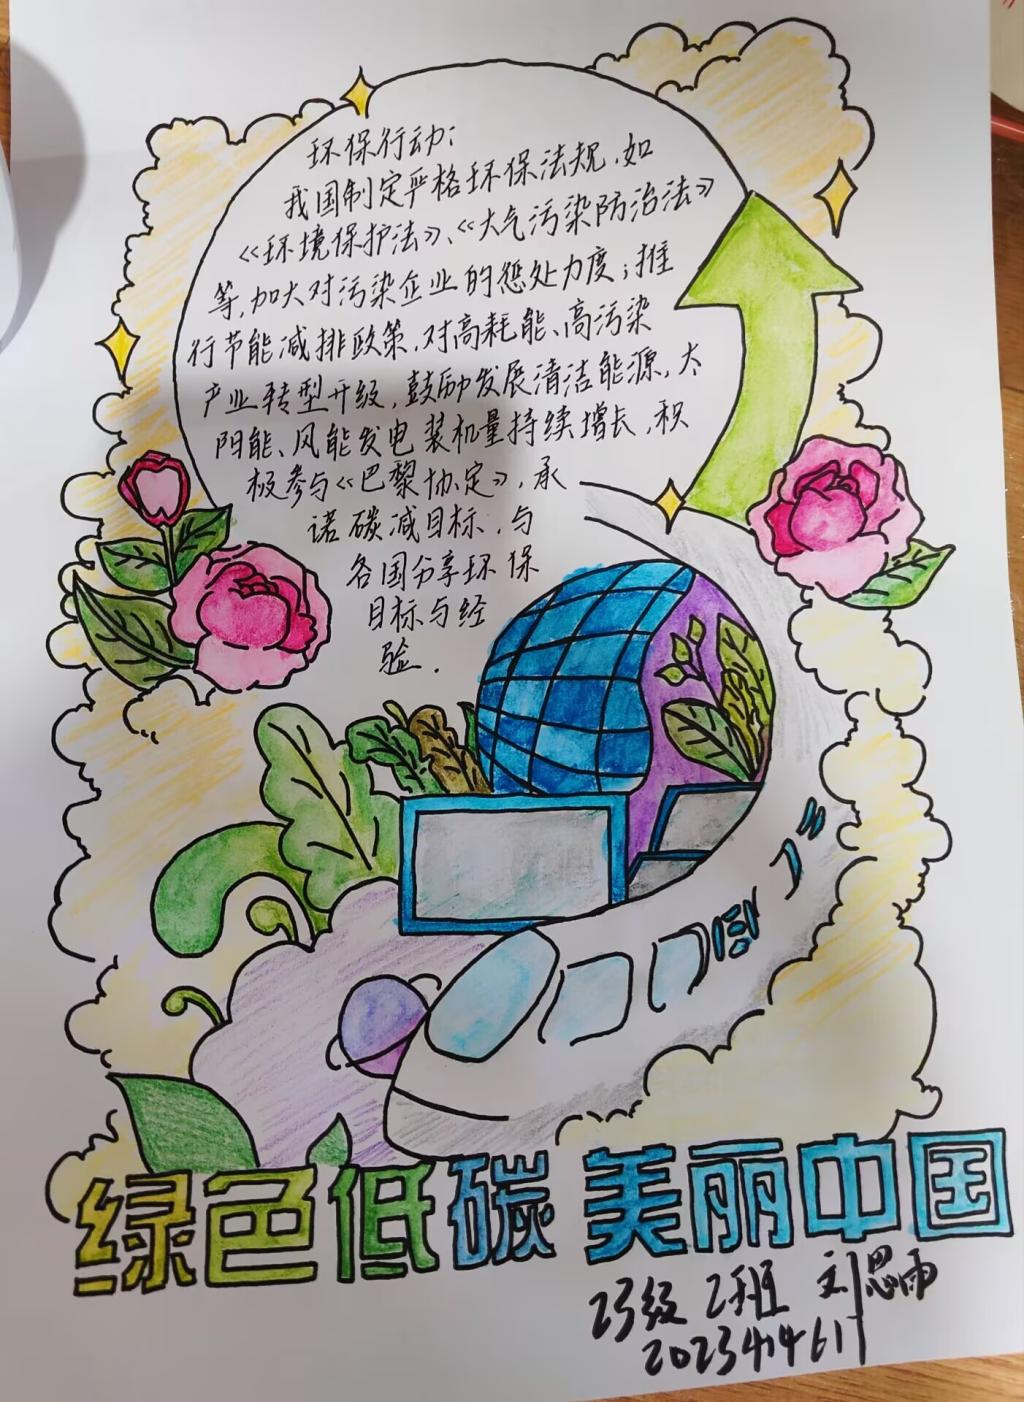 环保行动：
我国制定严格环保法规，如
《环境保护法》、《大气污染防治法》
等，加大对污染企业的惩处力度；推
行节能减排政策，对高耗能、高污染
产业转型升级，鼓励发展清洁能源，太
阳能、风能发电装机量持续增长，积
极参与《巴黎协定》，承
诺碳减目标，与
各国分享环保
目标与经
验．
绿色低碳 美丽中国
23级 2班 刘思雨
2023414611